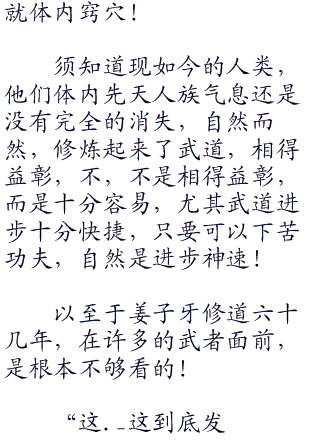 就体内窍穴！
须知道现如今的人类，
他们体内先天人族气息还是
没有完全的消失，自然而
然，修炼起来了武道，相得
益彰，不，不是相得益彰，
而是十分容易，尤其武道进
步十分快捷，只要可以下苦
功夫，自然是进步神速！
以至于姜子牙修道六十
几年，在许多的武者面前，
是根本不够看的！
“这._这到底发